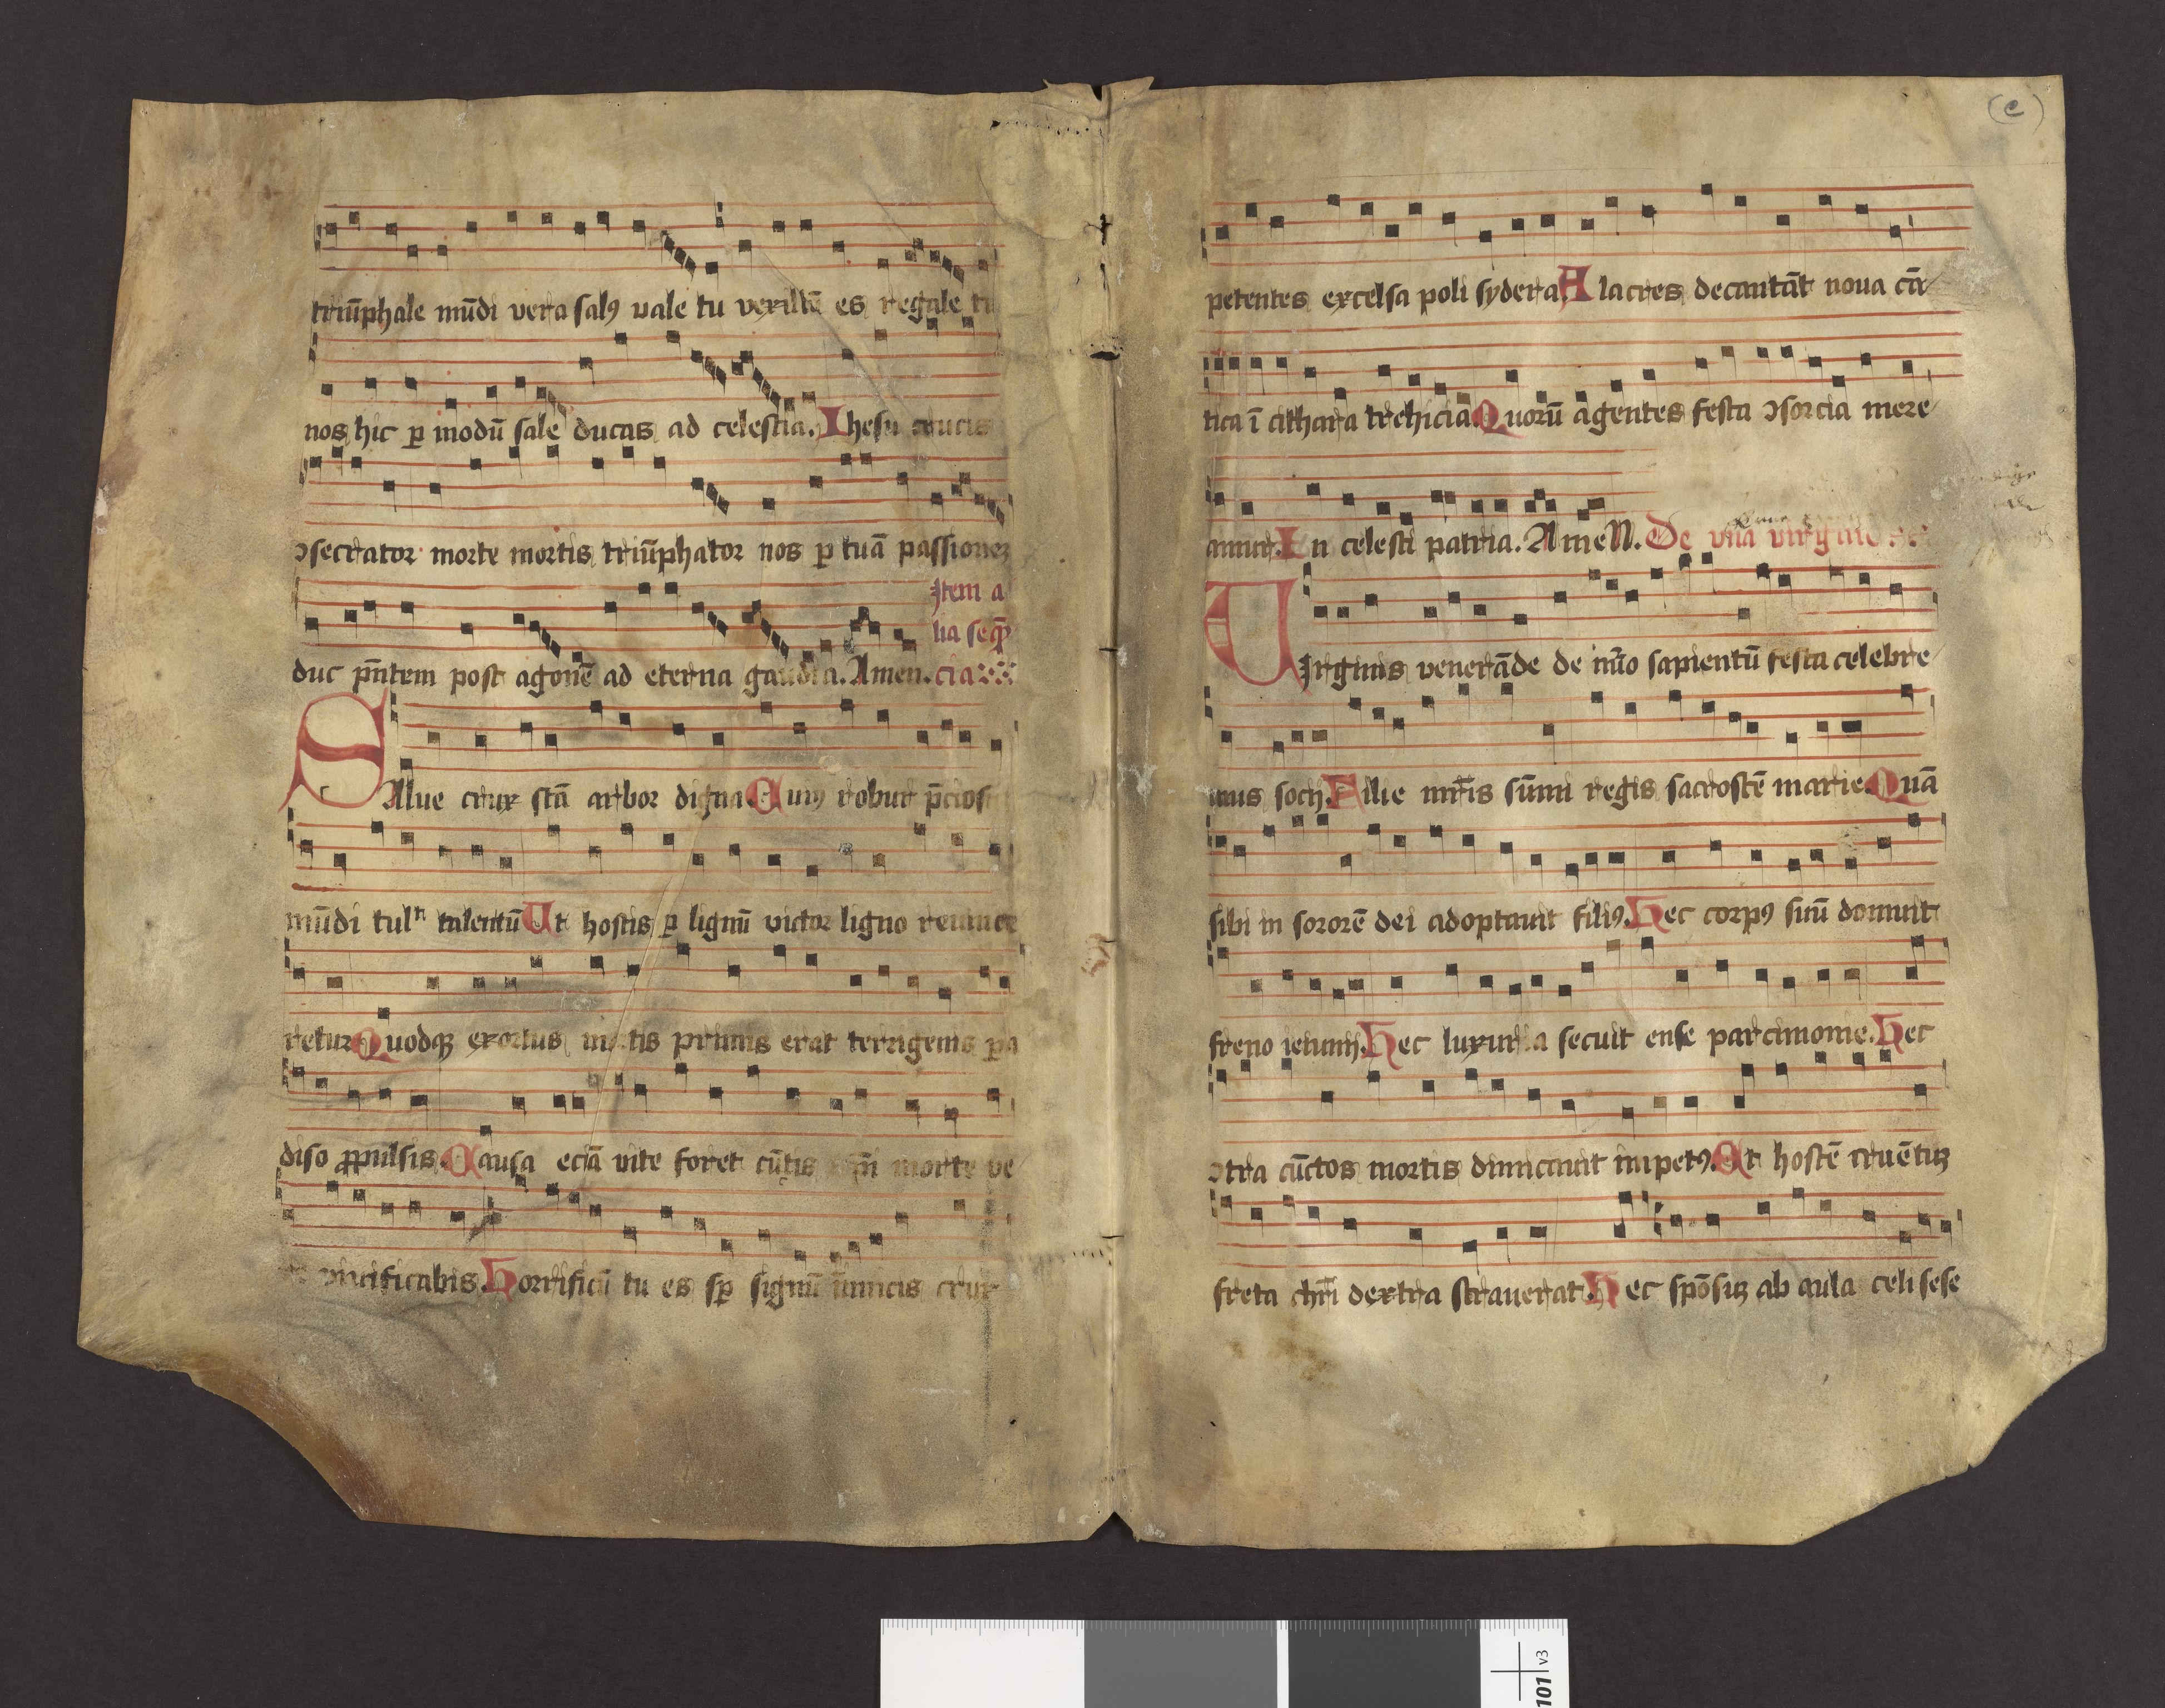 (e)
triũphale mũdi vera salꝯ vale tu vexillũ es regale tu
nos hic ꝑ modũ sale ducas ad celestia. Ihesu crucis
ↄsecrator morte mortis triũphator nos ꝑ tuã passionez
Item a
lia seqͫ
duc p̄ntem post agonē ad eterna gaudia. Amen. cia
SAlue crux sc̄ã arbor digna Cuiꝯ robur p̄cios
mũdi tulit talentũ Ut hostis ꝑ lignũ victor ligno reuince
retur Quodqꝫ exortus mortis primis erat terrigenis pa
diso ꝓpulsis. Causa eciã vite foret cũtis morte ve
viuificabis. Horrificũ tu es sꝑ signũ inimicis crux
petentes excelsa poli sydera Alacres decantãt noua cã
tica ĩ cithara trehicia. Quorũ agentes festa ↄsorcia mere
amur. In celesti patria. AmeN. De vna virgine
VIrginis venerãde de nũo sapientũ festa celebre
mus socij. Filie mr̄is sũmi regis sacrosctē marie. Quã
sibi in sororē dei adoptauit filiꝯ. Hec corpꝯ suũ domuit
freno ieiunij. Hec luxuria secuit ense parcimonie. Hec
ↄtra cũctos mortis dimicauit impetꝯ. Et hostē cruētuꝫ
freta chr̄i dextra strauerat. Hec spõsuꝫ ab aula celi sese
101 v3